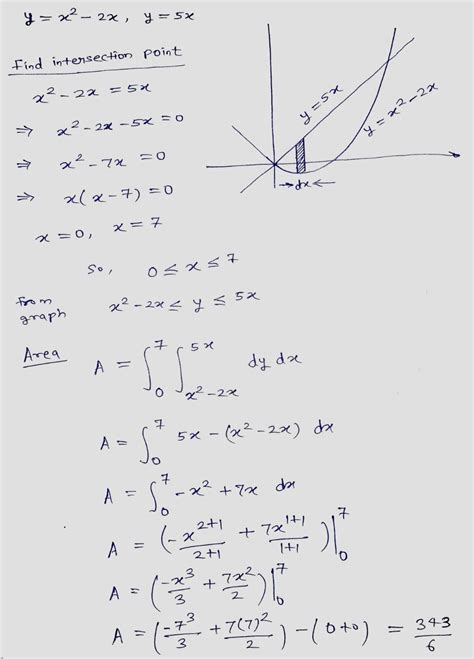 y = x² - 2x , y = 5x
Find intersection point
x² - 2x = 5x
⇒ x² - 2x - 5x = 0
⇒ x² - 7x = 0
⇒ x(x - 7) = 0
x = 0, x = 7
So, 0 ≤ x ≤ 7
from graph x² - 2x ≤ y ≤ 5x
y = 5x
y = x² - 2x
→dx←
Area A = ∫₀⁷ ∫_{x² - 2x}^{5x} dy dx
A = ∫₀⁷ 5x - (x² - 2x) dx
A = ∫₀⁷ -x² + 7x dx
A = (-x^{2+1}/2+1 + 7x^{1+1}/1+1)|₀⁷
A = (-x³/3 + 7x²/2)|₀⁷
A = (-7³/3 + 7(7)²/2) - (0+0) = 343/6